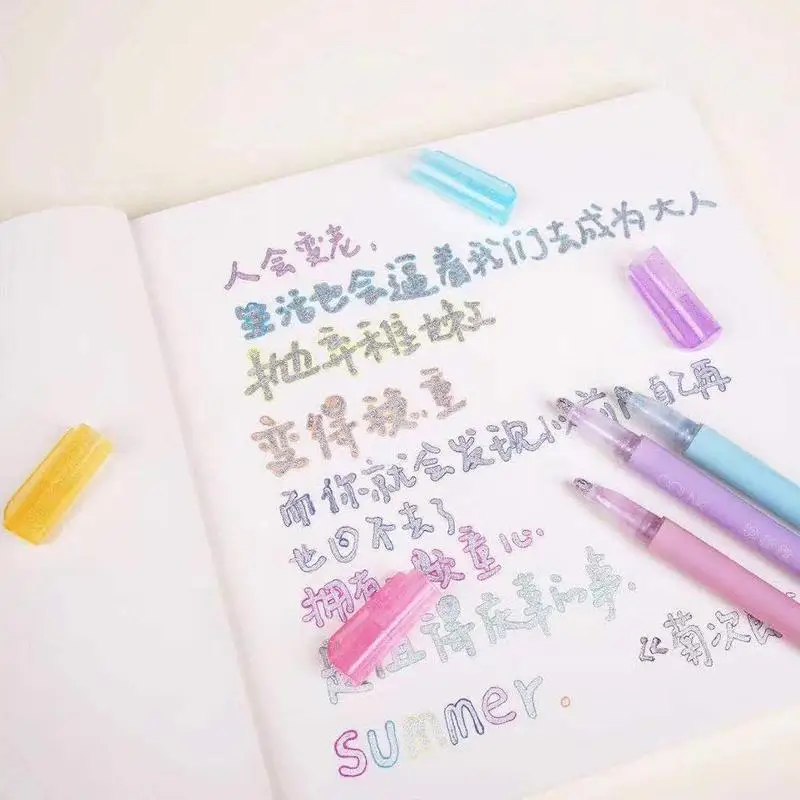 人会变老,
生活也会逼着我们去成为大人
抛弃稚嫩
变得稳重
而你就会发现 自己再
也回不去了
拥有 童心..
是值得庆幸的事.
《菊次
summer.